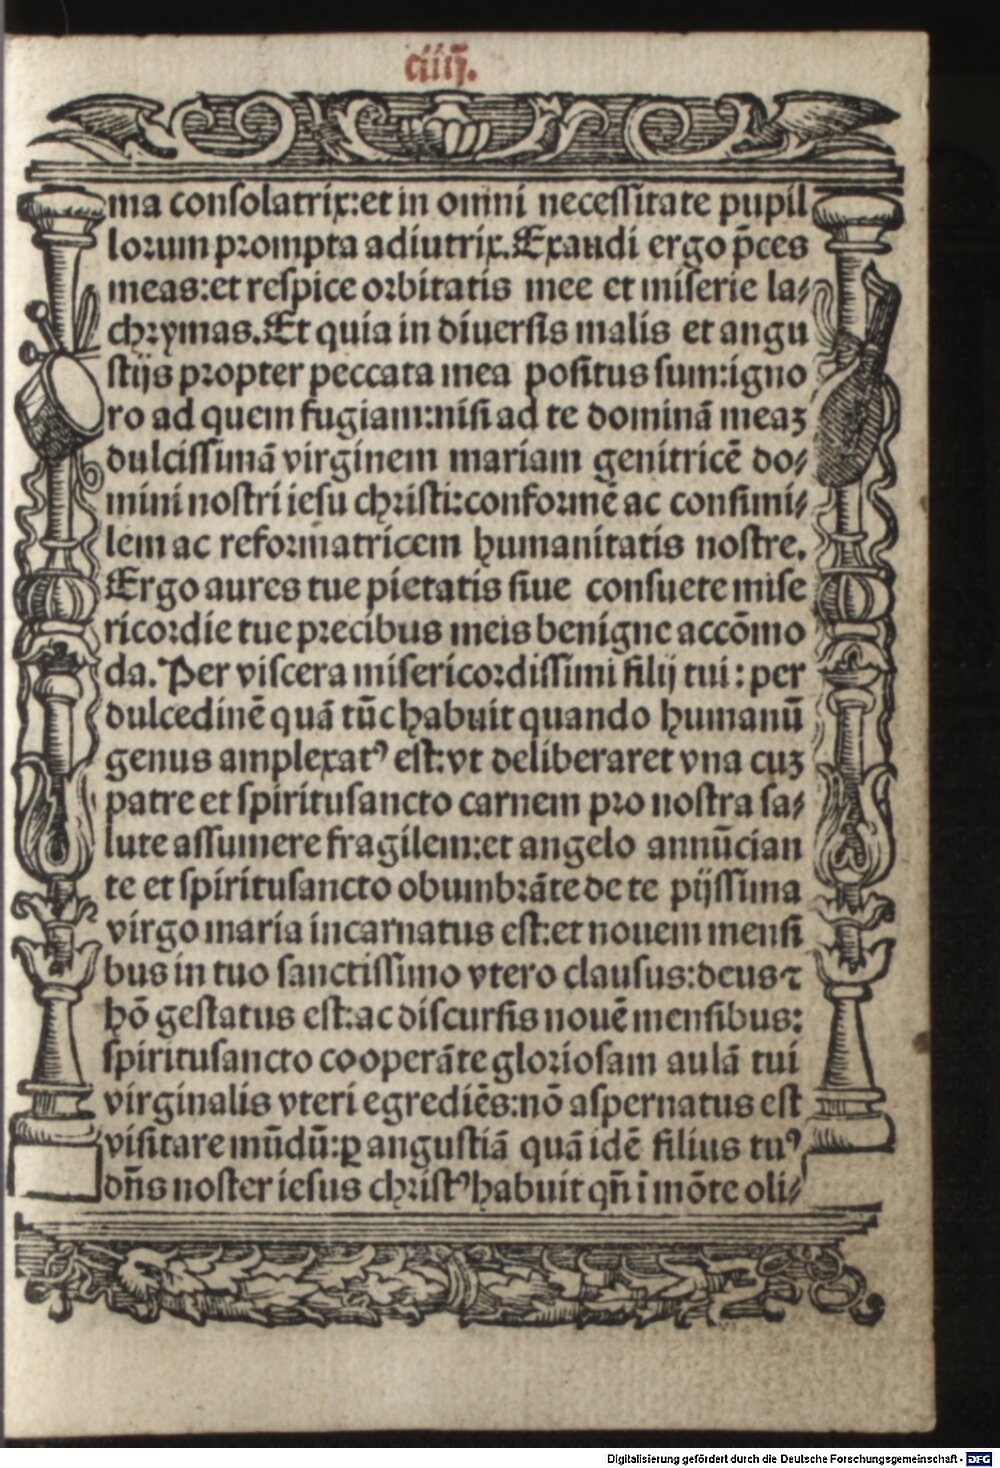 ciiij.
ma conſolatrix:et in omni neceſſitate pupil
lorum prompta adiutrix.Exaudi ergo p̄ces
meas:et reſpice orbitatis mee et miſerie la⸗
chrymas.Et quia in diuerſis malis et angu
ſtijs propter peccata mea poſitus ſum:igno
ro ad quem fugiam:niſi ad te dominā meaꝫ
dulciſſimā virginem mariam genitricē do⸗
mini noſtri ieſu chriſti:conformē ac conſimi⸗
lem ac reformatricem humanitatis noſtre.
Ergo aures tue pietatis ſiue conſuete miſe
ricordie tue precibus meis benigne accōmo
da.Per viſcera miſericordiſſimi filij tui:per
dulcedinē quā tūc habuit quando humanū
genus amplexatꝰ eſt:vt deliberaret vna cuꝫ
patre et ſpirituſancto carnem pro noſtra ſa⸗
lute aſſumere fragilem:et angelo annūcian
te et ſpirituſancto obumbrāte de te pijſſima
virgo maria incarnatus eſt:et nouem menſi
bus in tuo ſanctiſſimo vtero clauſus:deus ⁊
hō geſtatus eſt:ac diſcurſis nouē menſibus:
ſpirituſancto cooperāte glorioſam aulā tui
virginalis vteri egrediēs:nō aſpernatus eſt
viſitare mūdū:ꝑ anguſtiā quā idē filius tuꝰ
dn̄s noſter ieſus chriſtꝰ habuit qn̄ ī mōte oli⸗
Digitalisierung gefördert durch die Deutsche Forschungsgemeinschaft - DFG